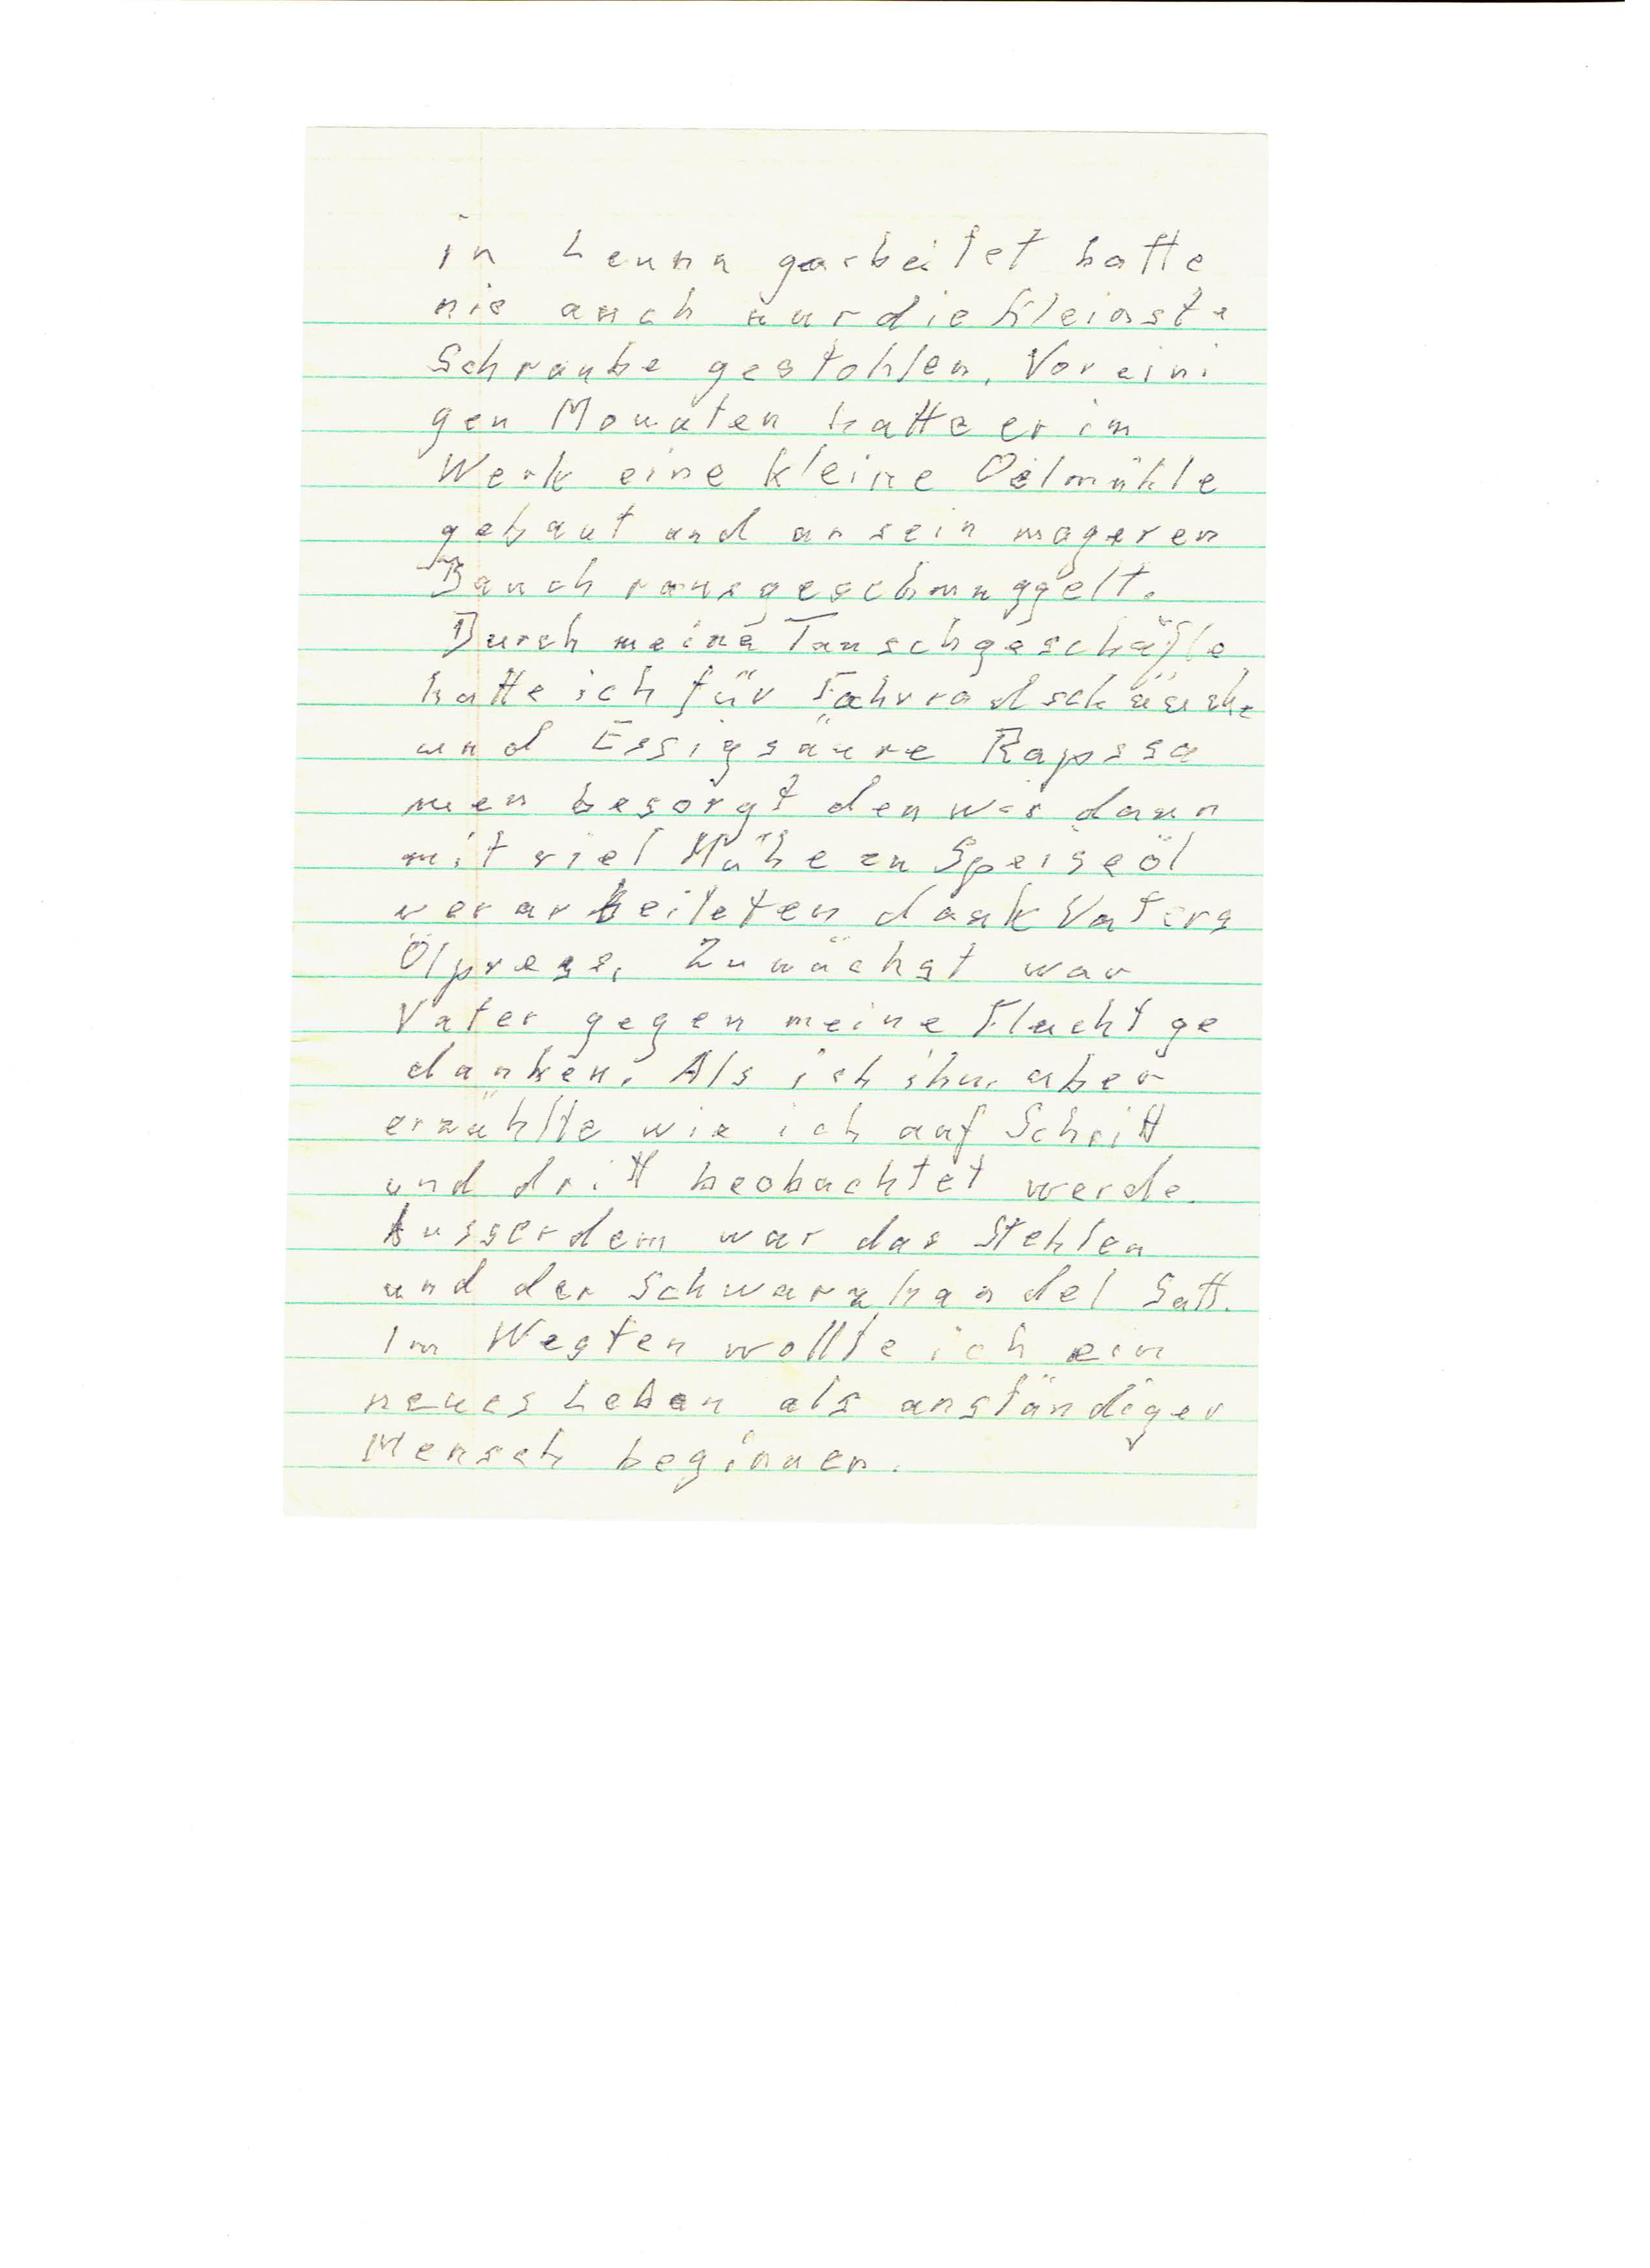 in Leuna gearbeitet hatte
nie auch nur die kleinste
Schraube gestohlen. Vor eini
gen Monaten hatte er im
Werk eine kleine Oelmühle
gebaut und an sein mageren
Bauch rausgeschmuggelt.
Durch meine Tauschgeschäfte
hatte ich für Fahrradschäuche
und Essigsäure Rapssa
men besorgt den wir dann
mit viel Mühe zu Speiseöl
verarbeiteten dank Vaters
Ölpresse. Zunächst war
Vater gegen meine Fluchtge
danken. Als ich ihm aber
erzählte wie ich auf Schritt
und dritt beobachtet werde.
Ausserdem war das Stehlen
und der Schwarzhandel Satt.
Im Westen wollte ich ein
neues Leben als anständiger
Mensch beginnen.